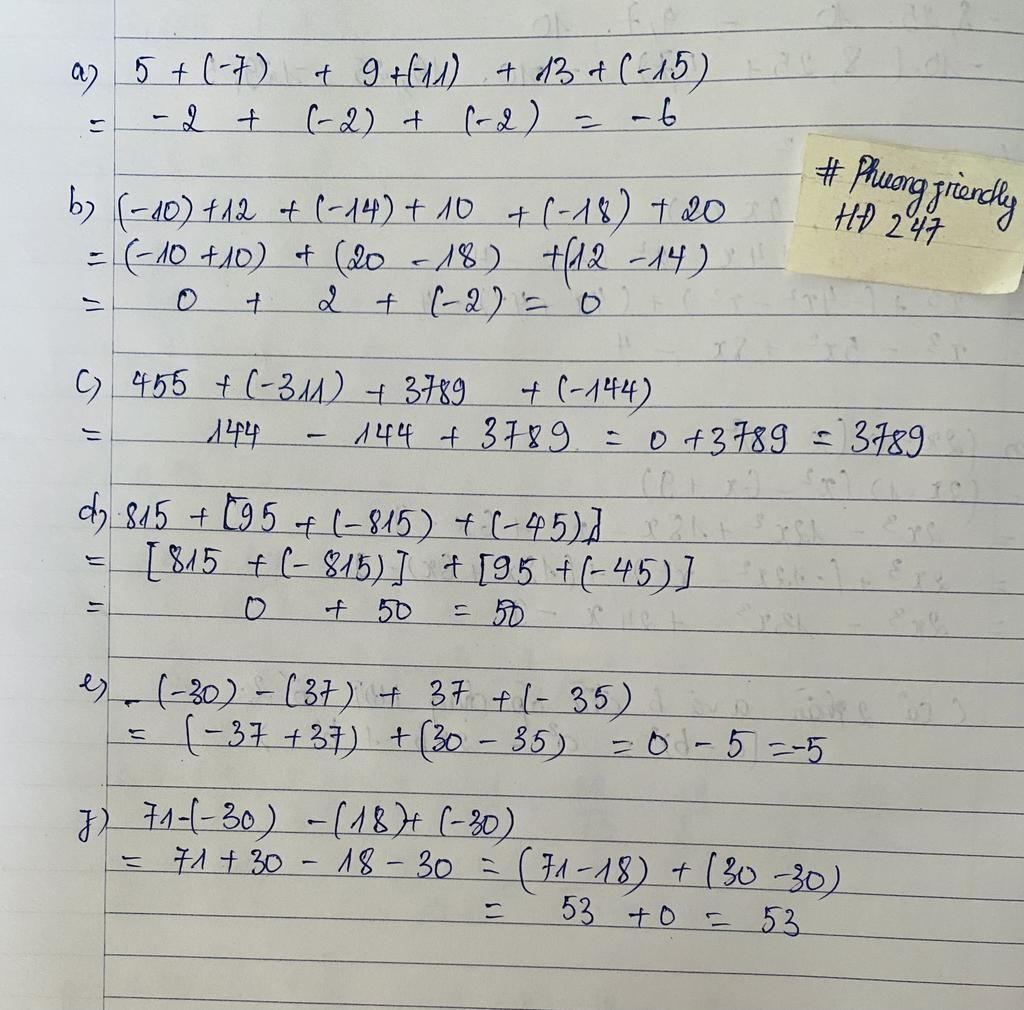 a) 5 + (-7) + 9 + (-11) + 13 + (-15)
= -2 + (-2) + (-2) = -6
# Phuong friendly
HĐ 247
b) (-10) + 12 + (-14) + 10 + (-18) + 20
= (-10 + 10) + (20 - 18) + (12 - 14)
= 0 + 2 + (-2) = 0
c) 455 + (-311) + 3789 + (-144)
= 144 - 144 + 3789 = 0 + 3789 = 3789
d) 815 + [95 + (-815) + (-45)]
= [815 + (-815)] + [95 + (-45)]
= 0 + 50 = 50
e) - (-30) - (37) + 37 + (- 35)
= (-37 + 37) + (30 - 35) = 0 - 5 = -5
f) 71 - (-30) - (18) + (-30)
= 71 + 30 - 18 - 30 = (71 - 18) + (30 - 30)
= 53 + 0 = 53